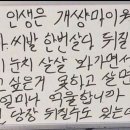 인생은 개썅마이웨
씨발 한번살다 뒤질
눈치 살살 봐가면서
고 싶은거 못하고 살면
얼마나 억울합니까
당장 뒤질수도 있는